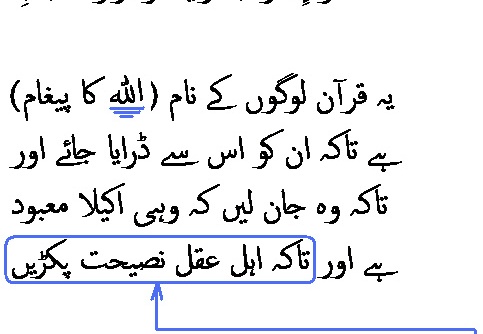 یہ قرآن لوگوں کے نام (اللہ کا پیغام)
ہے تاکہ ان کو اس سے ڈرایا جائے اور
تاکہ وہ جان لیں کہ وہی اکیلا معبود
ہے اور تاکہ اہل عقل نصیحت پکڑیں